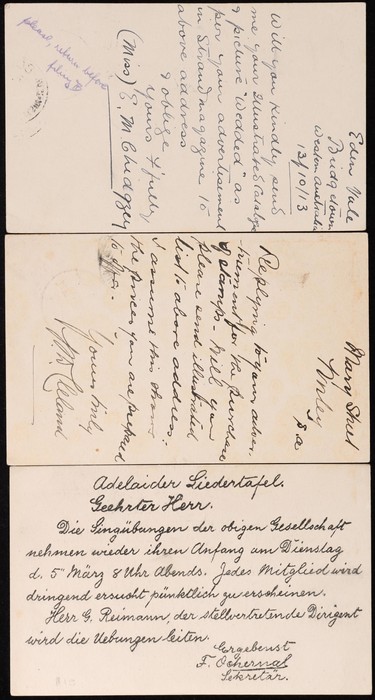 Eden Vale
Bridgetown
Western Australia
13/10/13
Will you kindly send
me your Illustrated Catalogue
& picture "Wedded" as
per your advertisement
in Strand magazine to
above address
& oblige
Yours f'fully
(Miss) E. M.
please return before
filing
Mary Street
Unley
S.a
Replying to your adver-
tisement for the purchase
of stamps - Will you
please send illustrated
list to above address.
I assume this shows
the prices you are prepared
to give.
Yours truly
Cleland
Adelaider Liedertafel.
Geehrter Herr.
Die Singübungen der obigen Gesellschaft
nehmen wieder ihren Anfang am Dienstag
d. 5 März 8 Uhr Abends. Jedes Mitglied wird
dringend ersucht pünktlich zu erscheinen.
Herr G. Reimann, der stellvertretende Dirigent
wird die Uebungen leiten.
Ergebenst
F.
Sekretär.